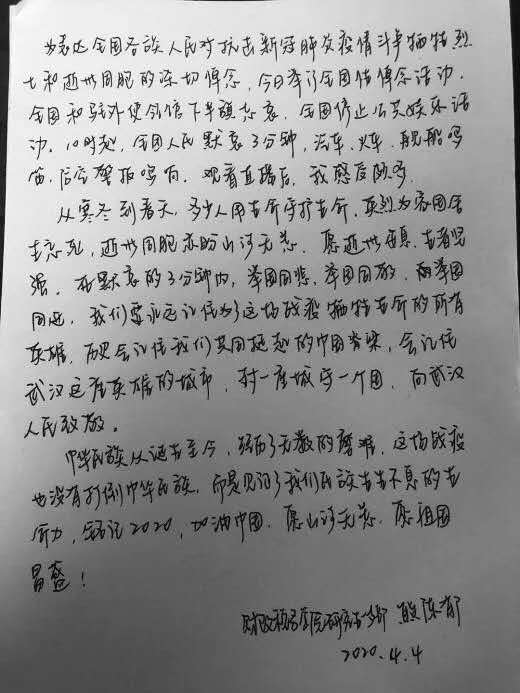 为表达全国各族人民对抗击新冠肺炎疫情斗争牺牲烈
士和逝世同胞的深切悼念，今日举行全国性悼念活动，
全国和驻外使领馆下半旗志哀，全国停止公共娱乐活
动。10时起，全国人民默哀3分钟，汽车、火车、舰船鸣
笛，防空警报鸣响。观看直播后，我感慨颇多。
从寒冬到春天，多少人用生命守护生命，英烈为家国舍
生忘死，逝世同胞亦盼山河无恙。愿逝世安息，生者坚
强。在默哀的3分钟内，举国同悲，举国同敬，举国
同进。我们要永远记住为了这场战疫牺牲生命的所有
英雄，历史会记住我们共同挺起的中国脊梁，会记住
武汉这座英雄的城市，封一座城守一个国，向武汉
人民致敬。
中华民族从诞生至今，经历了无数的磨难，这场战疫
也没有打倒中华民族，而是见证了我们民族生生不息的生
命力，铭记2020，加油中国。愿山河无恙，愿祖国
昌盛！
财政税务学院研究生 陈郁
2020.4.4